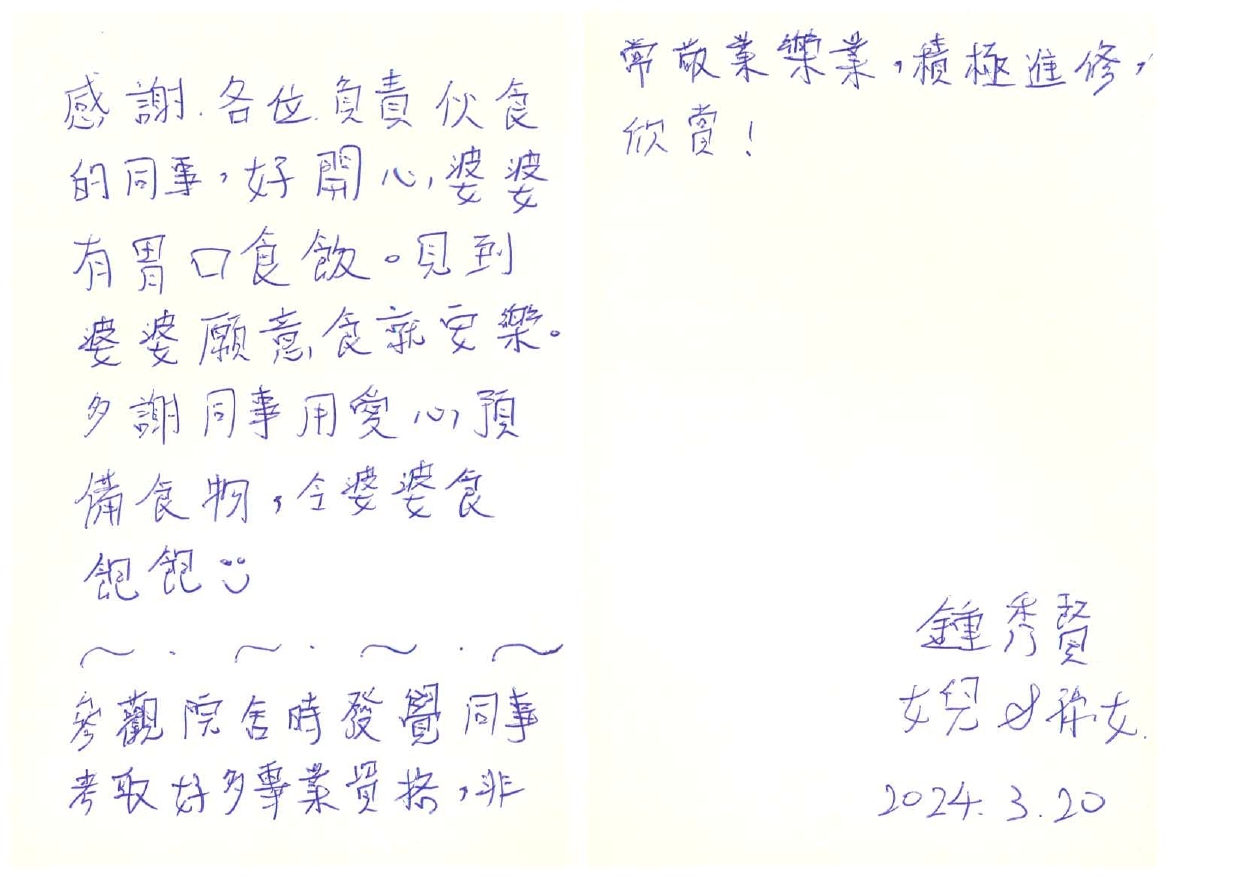 感謝各位負責伙食
的同事，好開心，婆婆
有胃口食飯。見到
婆婆願意食就安樂。
多謝同事用愛心預
備食物，令婆婆食
飽飽
參觀院舍時發覺同事
考取好多專業資格，非
常敬業樂業，積極進修，
欣賞！
鍾秀賢
女兒&孫女.
2024.3.20